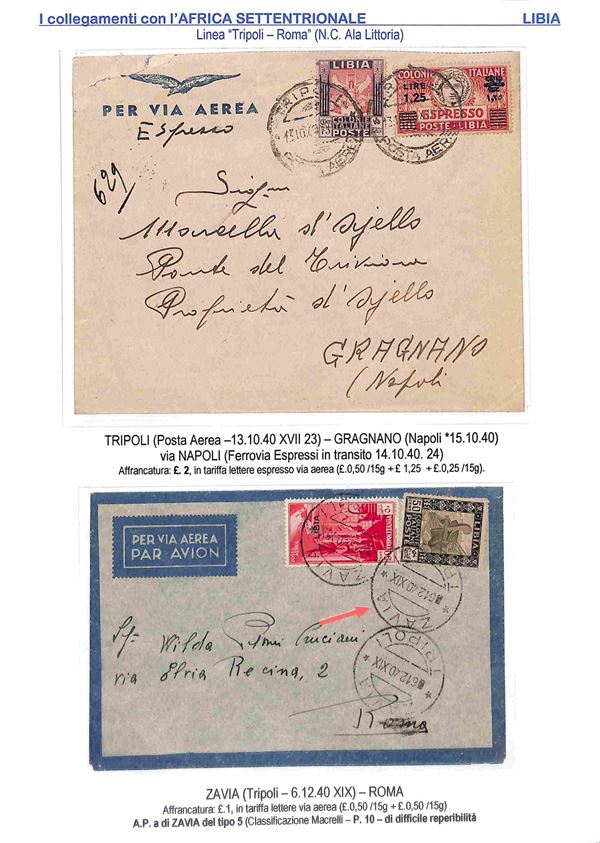 I collegamenti con l'AFRICA SETTENTRIONALE LIBIA
Linea "Tripoli – Roma" (N.C. Ala Littoria)
PER VIA AEREA
Espresso
629
LIBIA
COLONIE ITALIANE
POSTE
COLONIE ITALIANE
LIRE 1,25
ESPRESSO
POSTE-LIBIA
TRIPOLI
13.10.
POSTA AEREA
Marcella d'Ajello
Ponte del Trivione
Proprietà d'Ajello
GRAGNANO
(Napoli
TRIPOLI (Posta Aerea –13.10.40 XVII 23) – GRAGNANO (Napoli *15.10.40)
via NAPOLI (Ferrovia Espressi in transito 14.10.40. 24)
Affrancatura: £. 2, in tariffa lettere espresso via aerea (£.0,50 /15g + £ 1,25 + £.0,25 /15g).
PER VIA AEREA
PAR AVION
LIBIA
LIBIA
50
ZAVIA
6.12.40 XIX
TRIPOLI
6.12.40 XIX
ZAVIA
Wilda
via Elvia Recina, 2
Roma
ZAVIA (Tripoli – 6.12.40 XIX) – ROMA
Affrancatura: £.1, in tariffa lettere via aerea (£.0,50 /15g + £.0,50 /15g)
A.P. a di ZAVIA del tipo 5 (Classificazione Macrelli – P. 10 – di difficile reperibilità